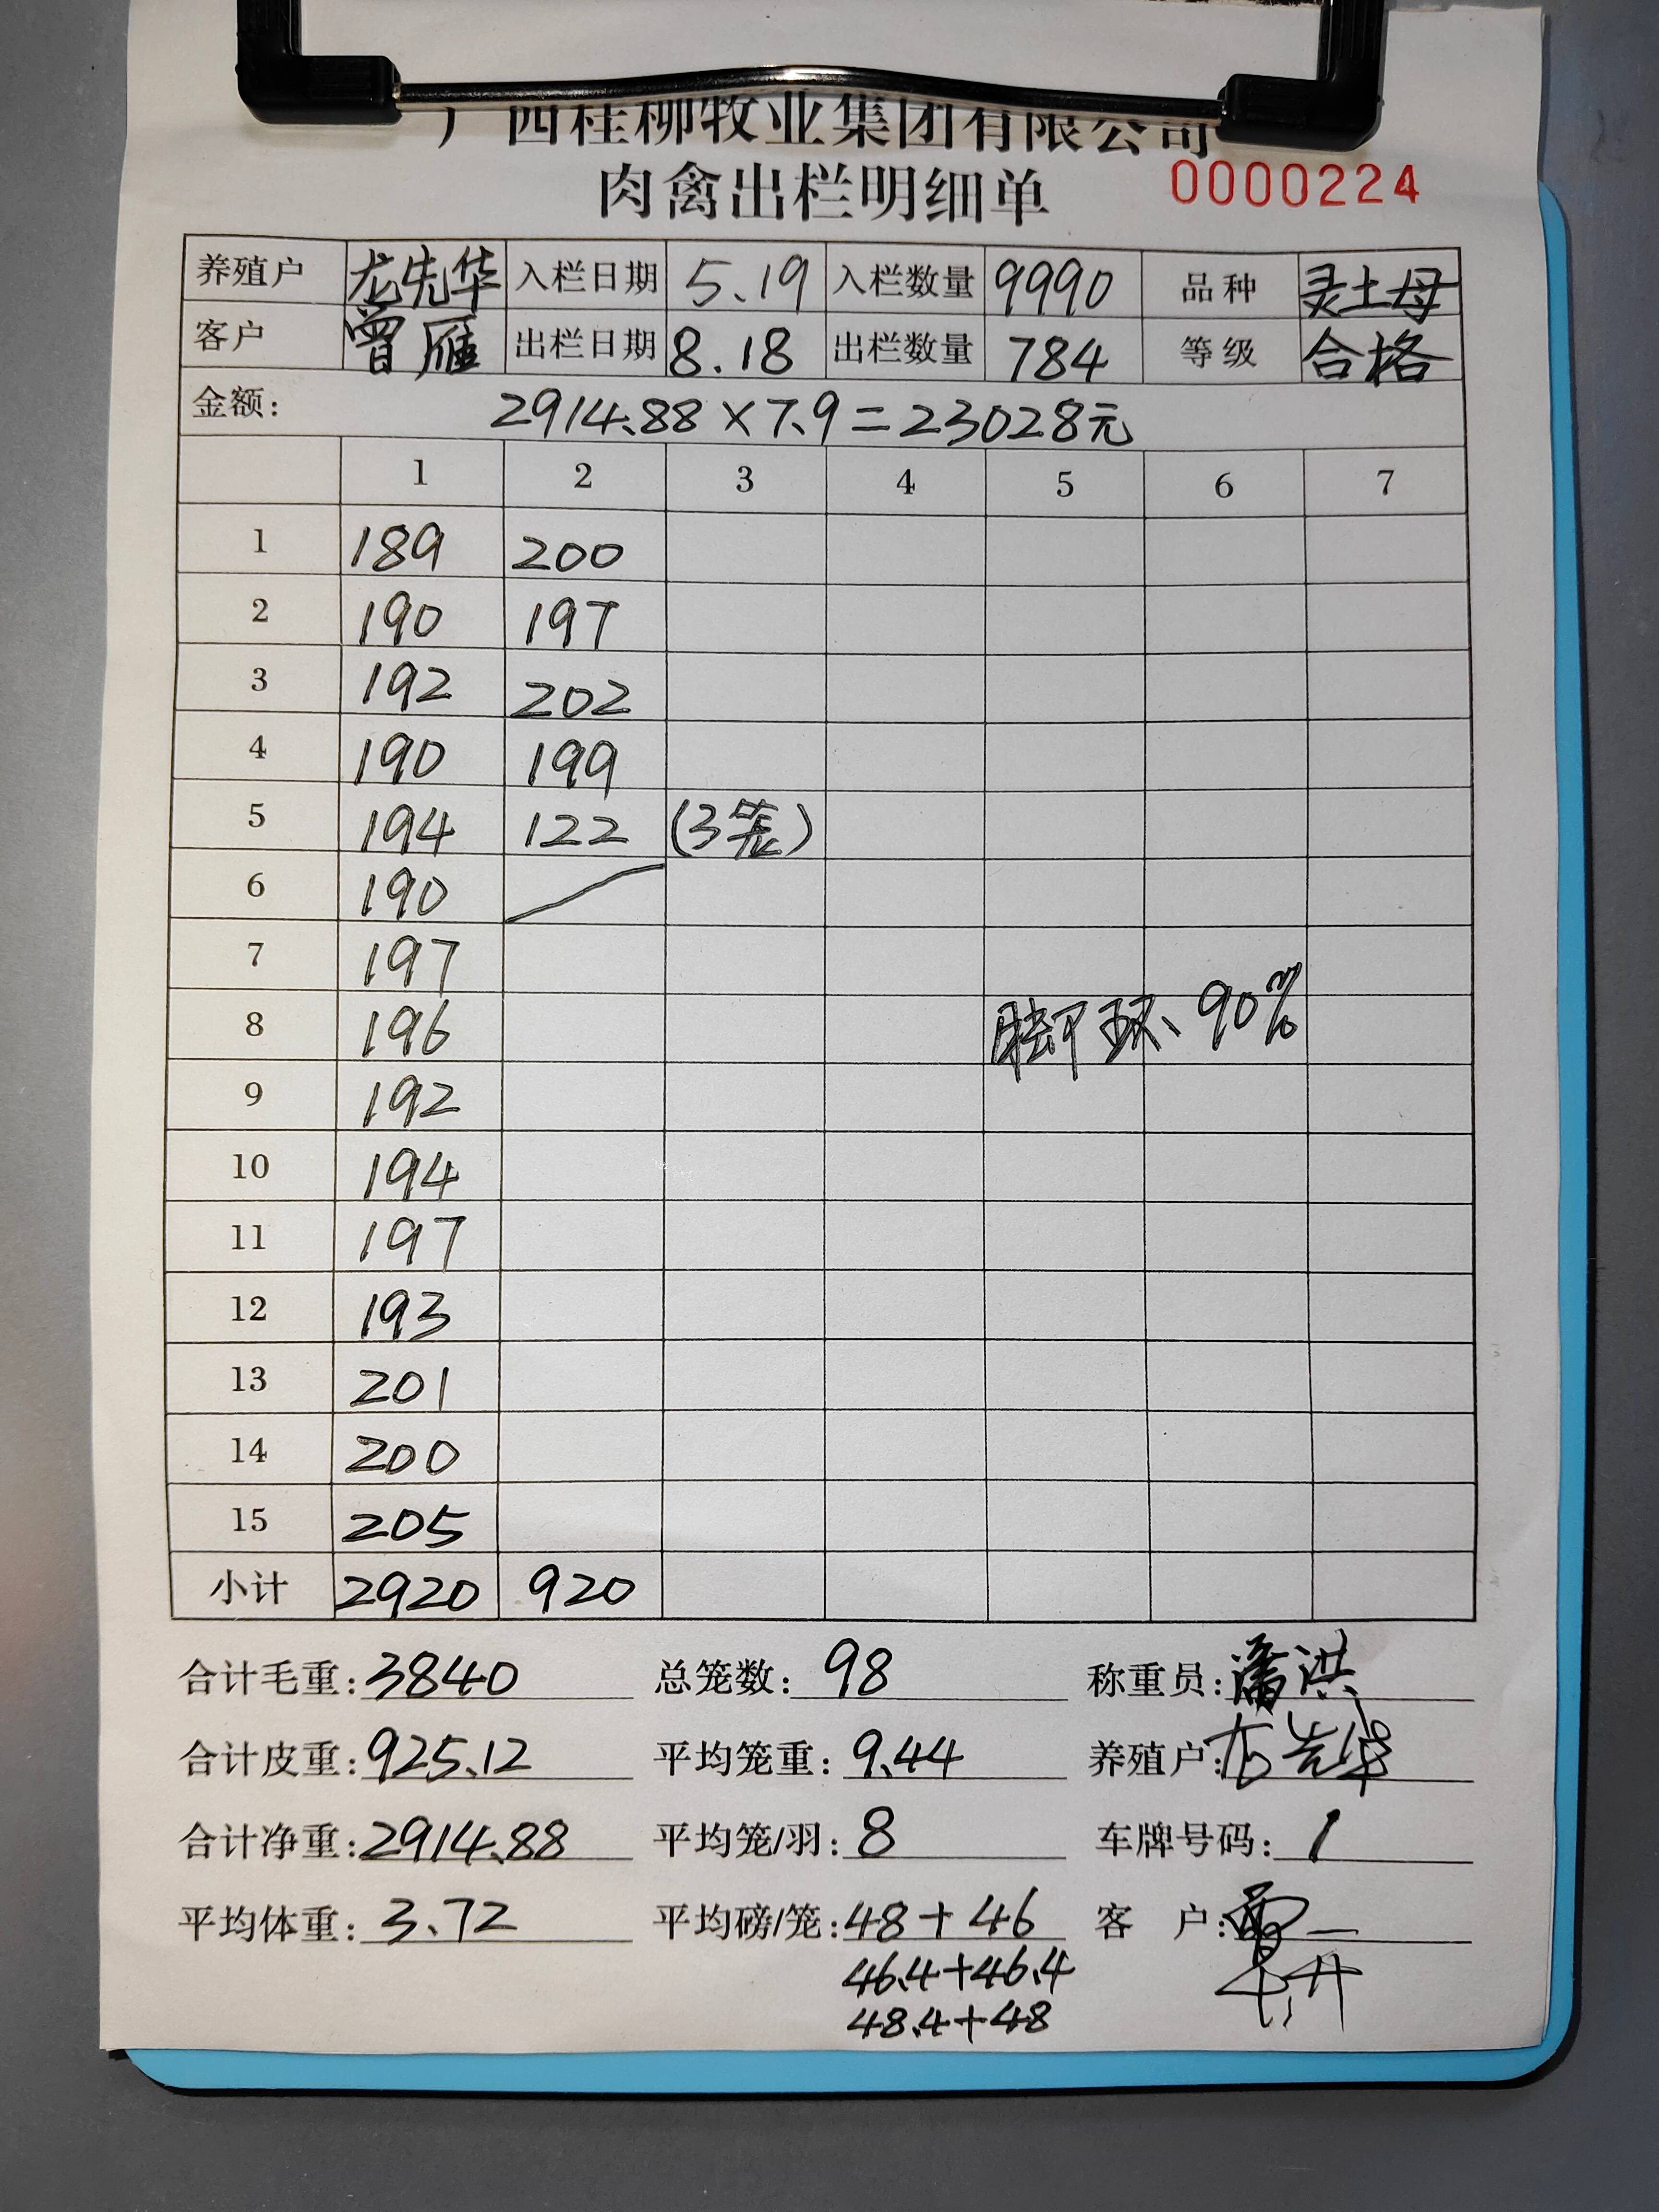 广西桂柳牧业集团有限公司
肉禽出栏明细单 0000224
养殖户 龙先华 入栏日期 5.19 入栏数量 9990 品种 灵土母
客户 曾雁 出栏日期 8.18 出栏数量 784 等级 合格
金额: 2914.88×7.9=23028元
1 2 3 4 5 6 7
1 189 200
2 190 197
3 192 202
4 190 199
5 194 122 (3笼)
6 190
7 197
8 196 脚环、90%
9 192
10 194
11 197
12 193
13 201
14 200
15 205
小计 2920 920
合计毛重:3840 总笼数:98 称重员:潘洪
合计皮重:925.12 平均笼重:9.44 养殖户:龙先华
合计净重:2914.88 平均笼/羽:8 车牌号码:1
平均体重:3.72 平均磅/笼:48+46 客 户:
46.4+46.4
48.4+48